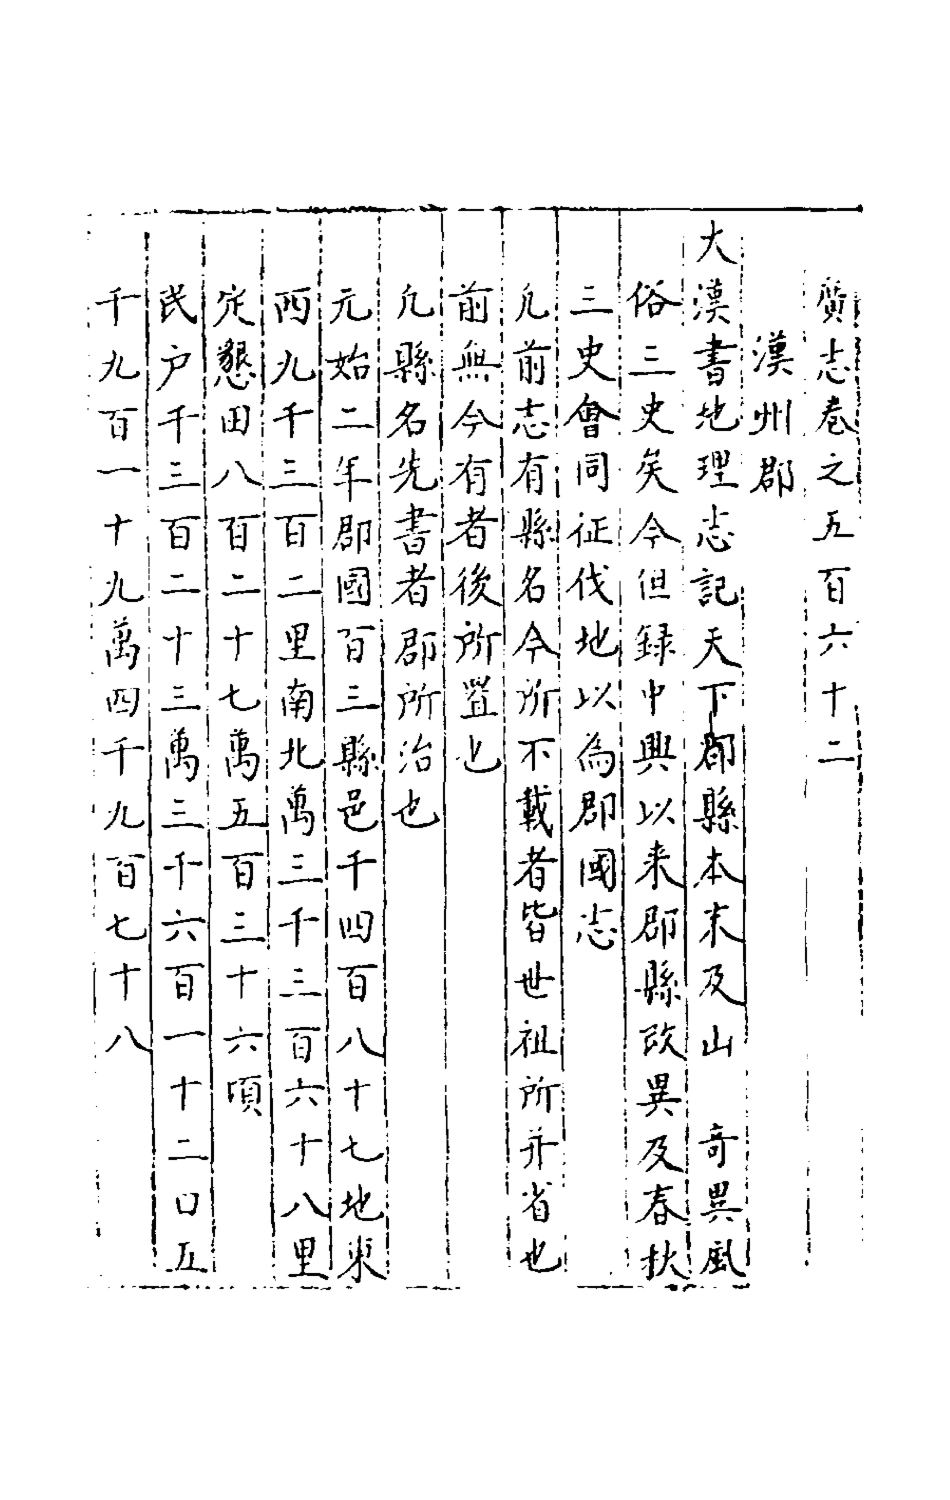 廣志卷之五百六十二
漢州郡
大漢書地理志記天下郡縣本末及山 奇異風
俗三史矣今但録中興以来郡縣改異及春秋
三史會同征伐地以為郡國志
凢前志有縣名今所不載者皆世祖所并省也
前無今有者後所置也
凢縣名先書者郡所治也
元始二年郡國百三縣邑千四百八十七地東
西九千三百二里南北萬三千三百六十八里
定懇田八百二十七萬五百三十六頃
民户千三百二十三萬三千六百一十二口五
千九百一十九萬四千九百七十八